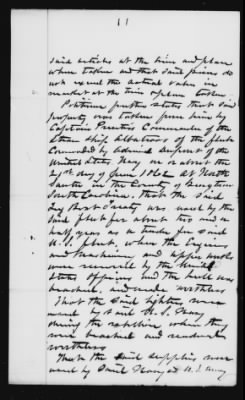 11
said articles at the time and place
where taken and that said prices do
not exceed the actual value in
market at the time & place taken
Petitioner further states that said
property was taken from him by
Captain Prentiss Commander of the
Steam Ship Albatross of the fleet
Commanded by Admiral Dupont of the
United States Navy on or about the
21st day of June 1862 at North
Santee in the County of Georgetown
South Carolina, that the said
Tug Boat Treaty was used by the
said fleet for about two and a
half years as a tender for said
U.S. fleet, when the Engines
and Machinery and upper works
were removed by the United
States officers and the hull was
beached, and made worthless
That the said lighters were
used by said U.S. Navy
during the rebellion when they
were beached and rendered
worthless
That the said supplies were
used by said Navy